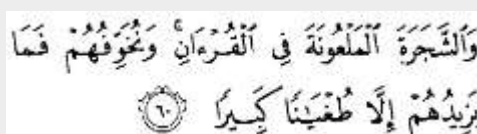 وَٱلشَّجَرَةَ ٱلْمَلْعُونَةَ فِى ٱلْقُرْءَانِۚ وَنُخَوِّفُهُمْ فَمَا
يَزِيدُهُمْ إِلَّا طُغْيَٰنًا كَبِيرًا ۝٦٠